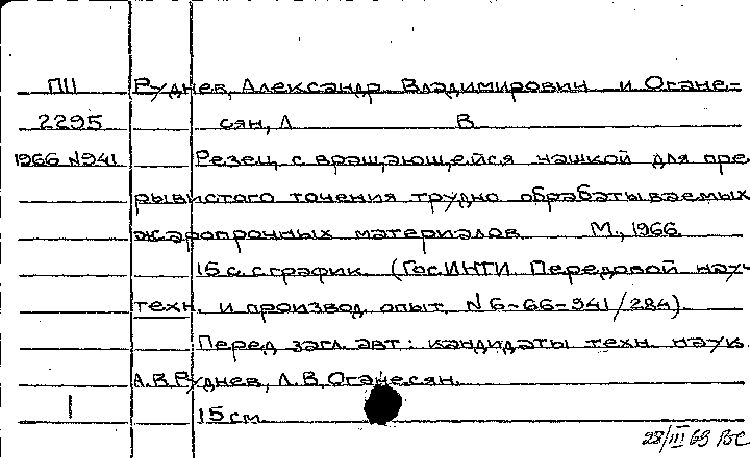 П11 Руднев, Александр Владимирович и Огане-
2295 сян, Л В.
1966 №941 Резец с вращающейся чашкой для пре
рывистого точения трудно обрабатываемых
жаропрочных материалов. М., 1966
15 с. с график. (Гос.ИНТИ. Передовой науч
техн. и производ. опыт. № 6-66-941/284).
Перед загл. авт.: кандидаты техн. наук
А.В.Руднев, Л.В.Оганесян.
1 15 см.
28/III 69 ВС